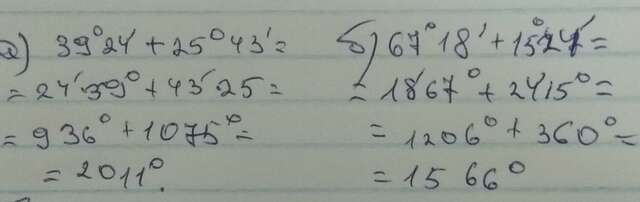 а) 39°24' + 25°43' =
= 24'39° + 43'25 =
= 936° + 1075° =
= 2011°.
б) 67°18' + 15°24' =
= 18'67° + 24'15° =
= 1206° + 360° =
= 1566°